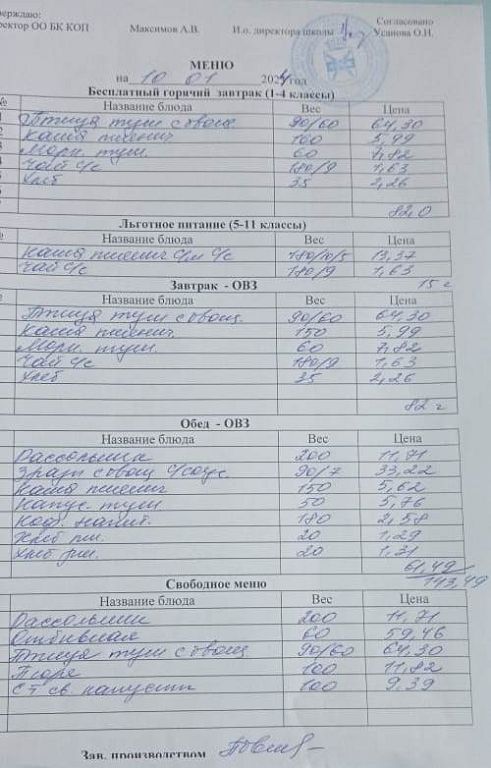 верждаю: Согласовано
ректор ОО БК КОП Максимов А.В. И.о. директора школы Усанова О.Н.
МЕНЮ
на 10 01 2024 год
Бесплатный горячий завтрак (1-4 классы)
№ Название блюда Вес Цена
1 Птица туш с овощ 90/60 64,30
2 Каша пшенич 100 3,99
3 Морк. туш. 60 7,82
Чай с/с 180/9 1,63
Хлеб 35 2,26
82,0
Льготное питание (5-11 классы)
№ Название блюда Вес Цена
Каша пшенич с/м с/с 180/10/5 13,37
Чай с/с 180/9 1,63
15 г
Завтрак - ОВЗ
Название блюда Вес Цена
Птица туш с овощ. 90/60 64,30
Каша пшенич. 150 5,99
Морк. туш. 60 7,82
Чай с/с 180/9 1,63
Хлеб 35 2,26
82 г
Обед - ОВЗ
Название блюда Вес Цена
Рассольник 200 11,71
Зразы с овощ с/соус 90/7 33,22
Каша пшенич 150 5,62
Капус. туш 50 5,76
Коф. напит. 180 2,58
Хлеб пш. 20 1,29
Хлеб рж. 20 1,31
61,49
143,49
Свободное меню
Название блюда Вес Цена
Рассольник 200 11,71
Отбивная 60 59,46
Птица туш с овощ 90/60 64,30
Пюре 100 11,82
С-т св. капусты 100 9,39
Зав. производством